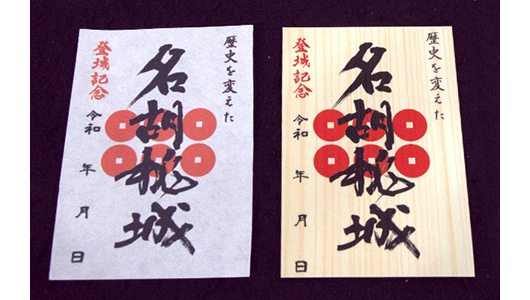 歴史を変えた
名胡桃城
登城記念
令和 年 月 日
歴史を変えた
名胡桃城
登城記念
令和 年 月 日